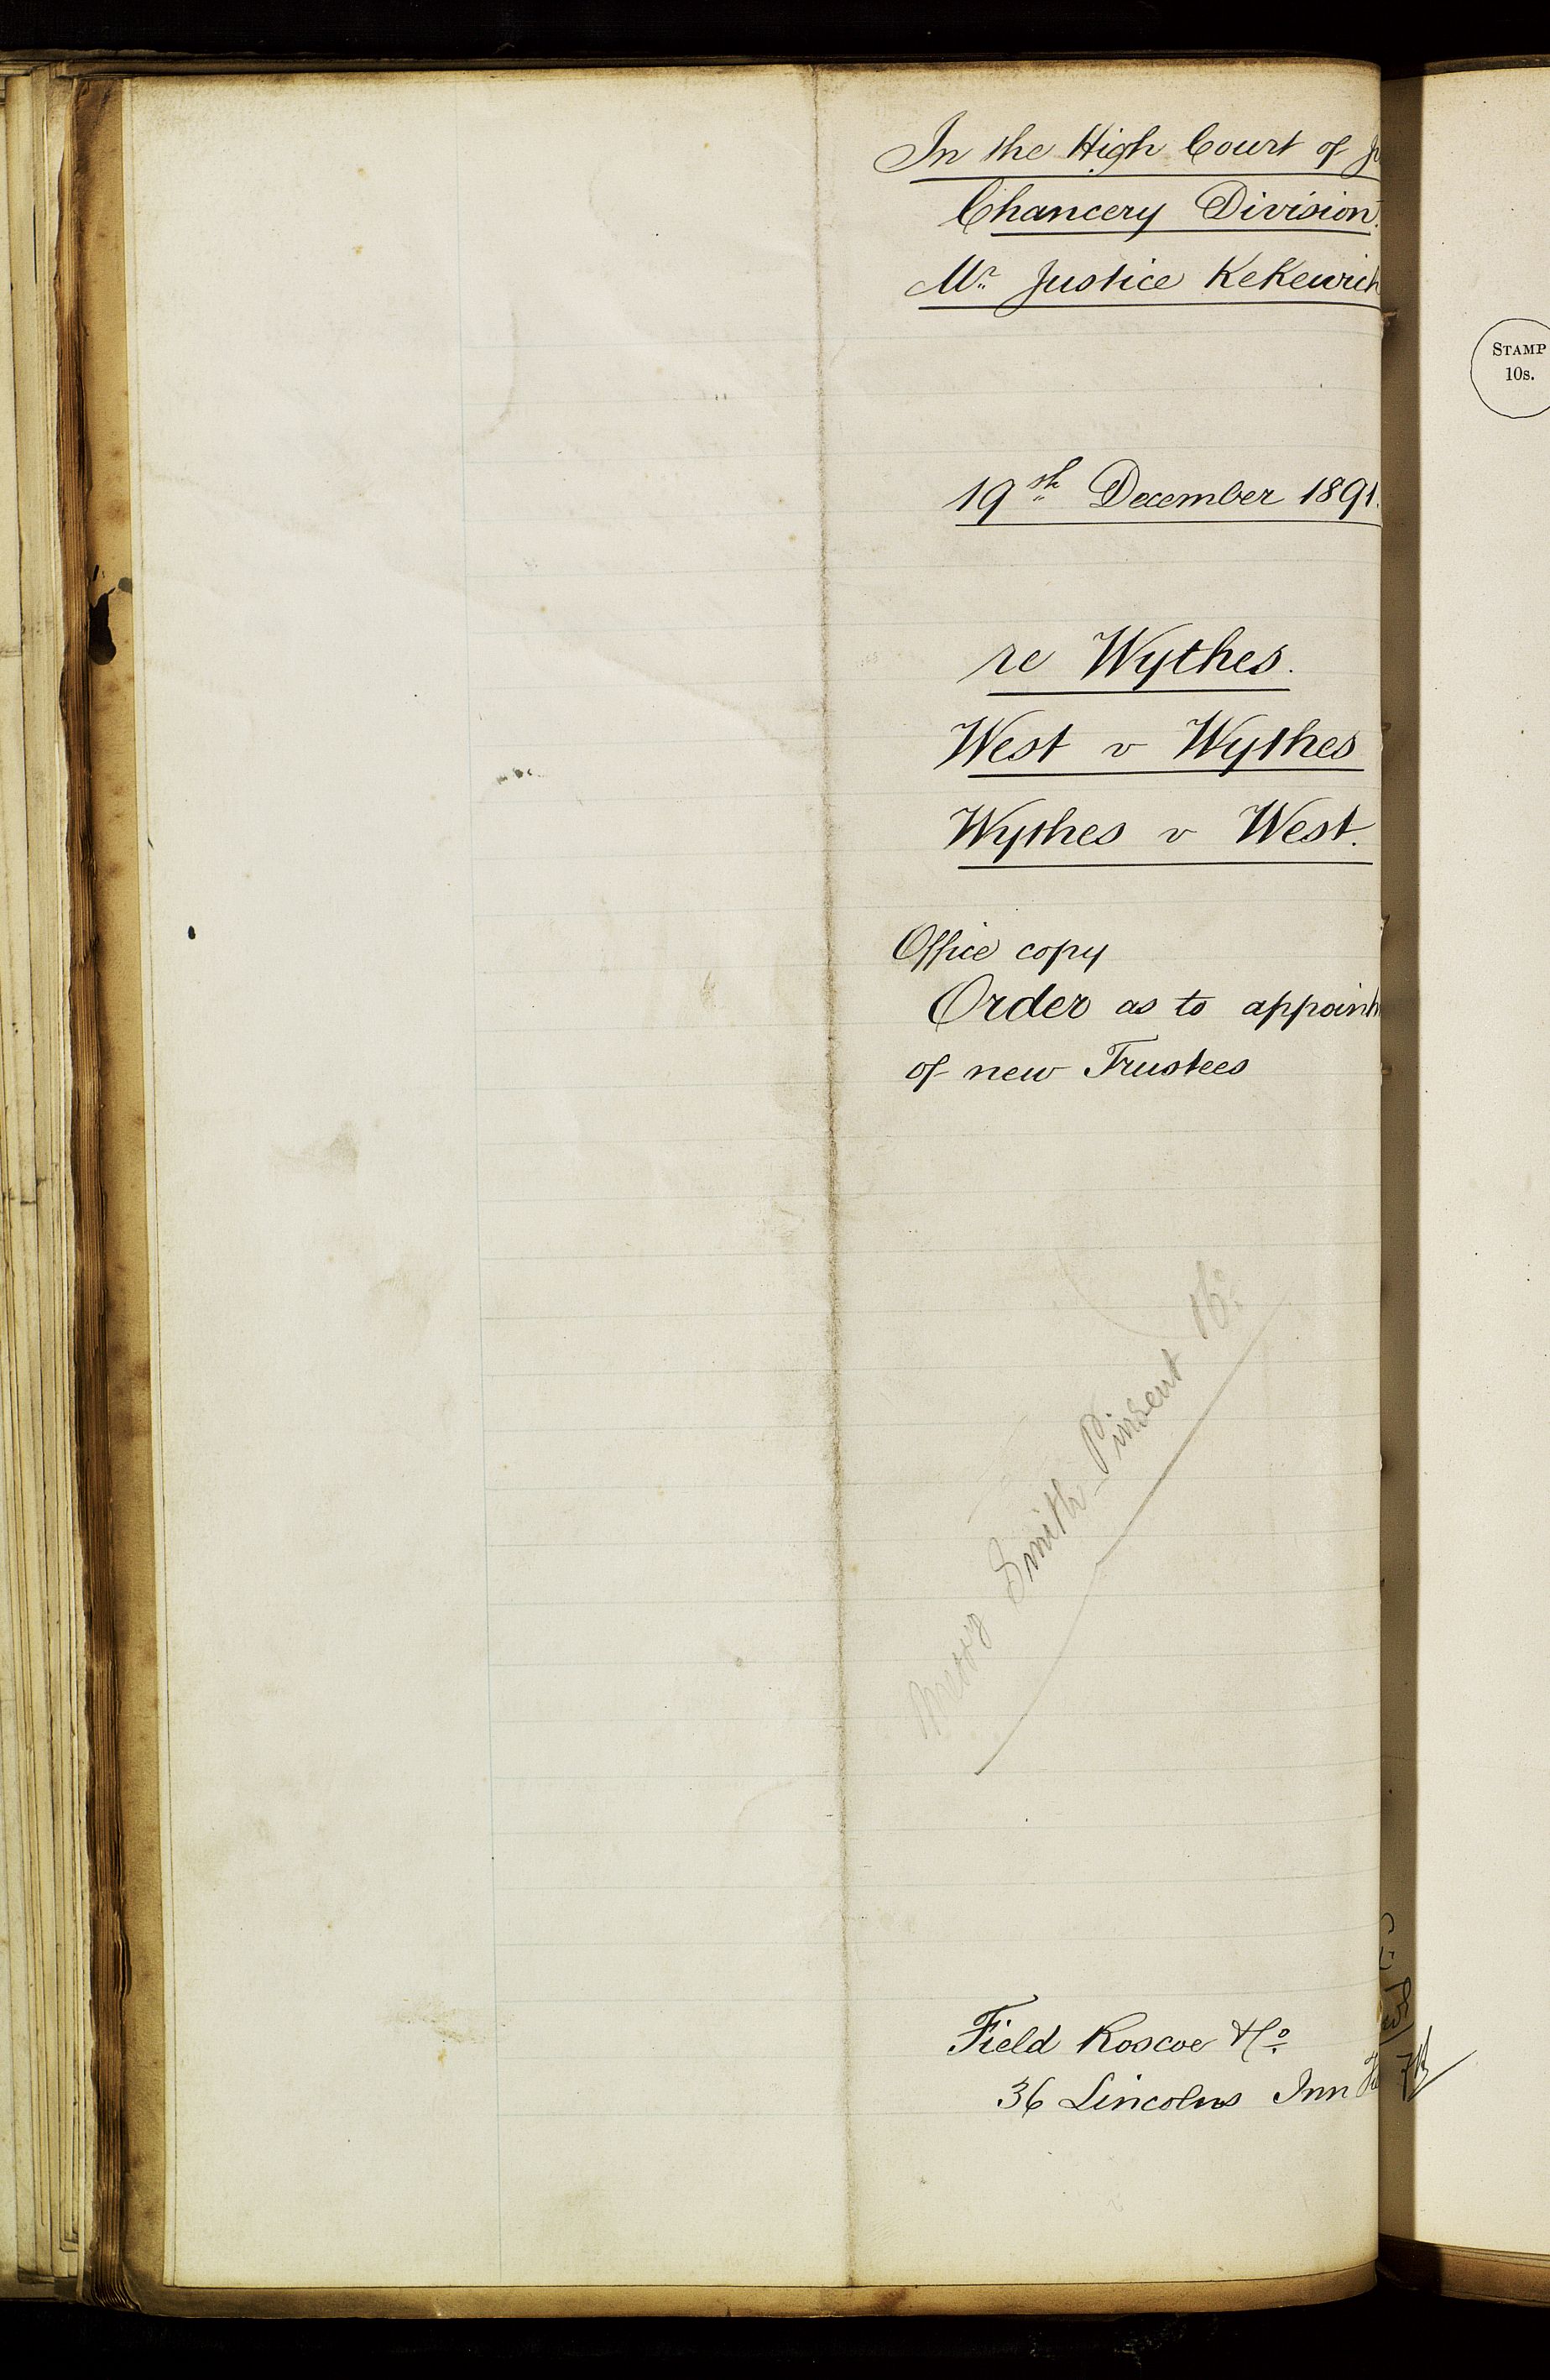 In the High Court of Ju
Chancery Division.
Mr. Justice Kekewich
19th December 1891.
re Wythes.
West v Wythes
Wythes v West.
Office copy
Order as to appoint
of new Trustees
Smith Pinsent &Co.
Field Roscoe &Co.
36 Lincolns Inn
STAMP
10s.